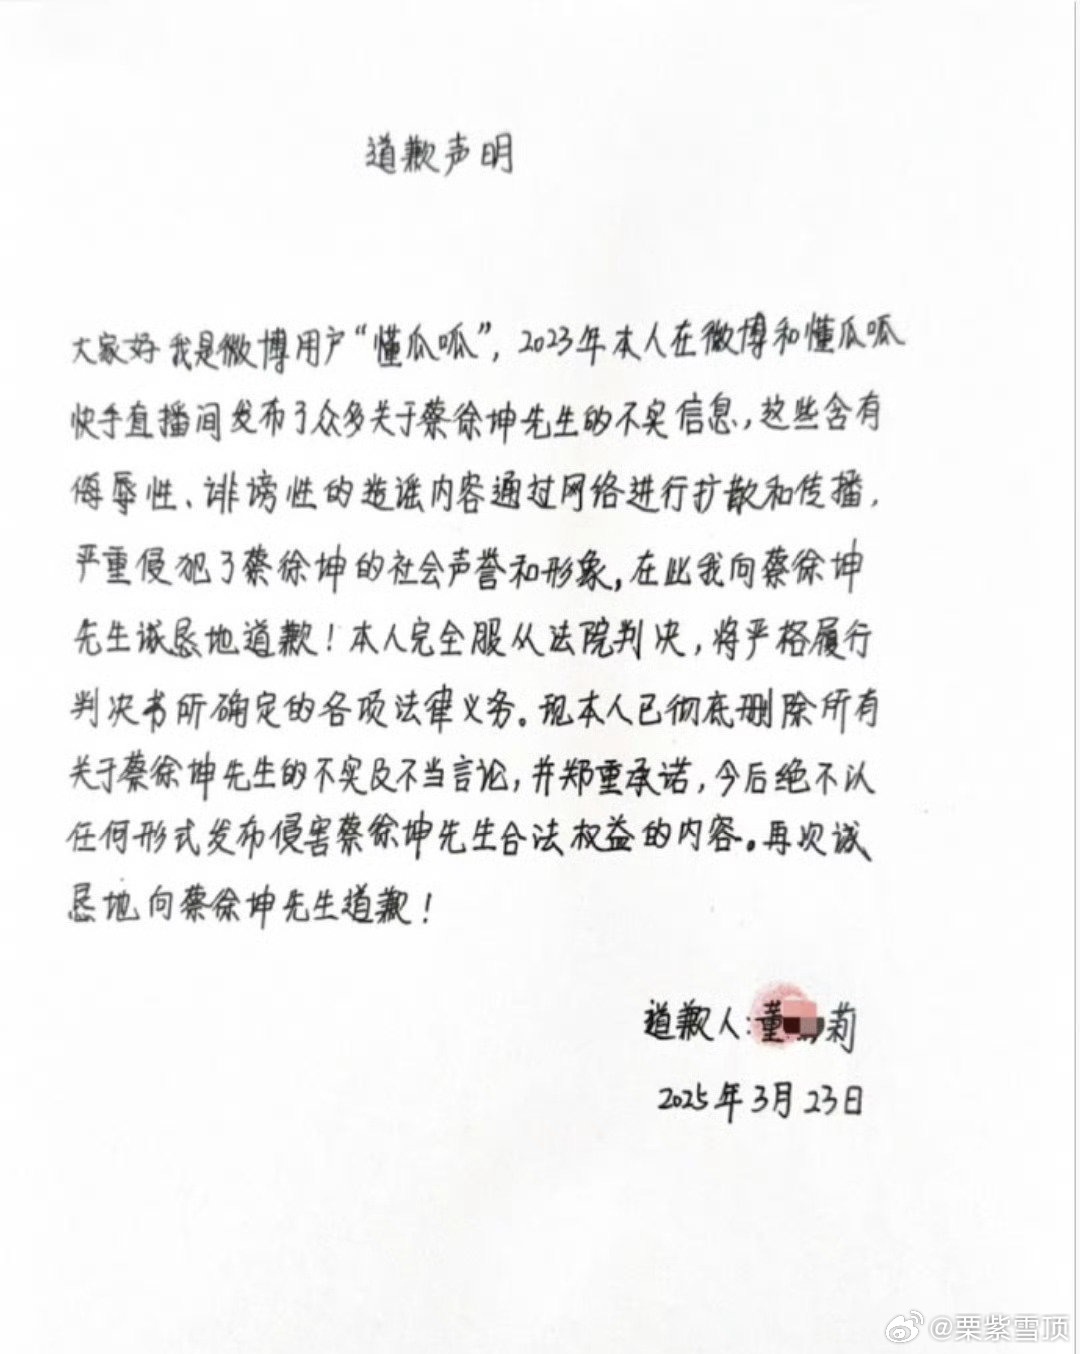 道歉声明
大家好我是微博用户“懂瓜呱”，2023年本人在微博和懂瓜呱
快手直播间发布了众多关于蔡徐坤先生的不实信息，这些含有
侮辱性、诽谤性的造谣内容通过网络进行扩散和传播，
严重侵犯了蔡徐坤的社会声誉和形象，在此我向蔡徐坤
先生诚恳地道歉！本人完全服从法院判决，将严格履行
判决书所确定的各项法律义务。现本人已彻底删除所有
关于蔡徐坤先生的不实及不当言论，并郑重承诺，今后绝不以
任何形式发布侵害蔡徐坤先生合法权益的内容。再次诚
恳地向蔡徐坤先生道歉！
道歉人：董莉
2025年3月23日
@栗紫雪顶